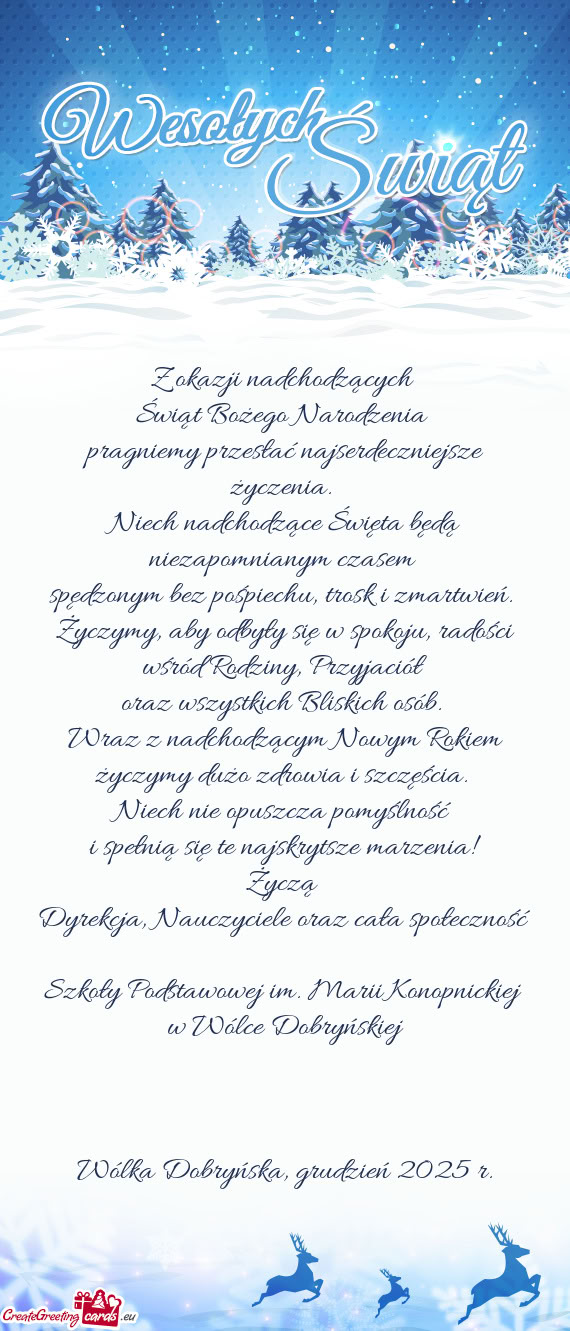 Wesołych Świąt
Z okazji nadchodzących
Świąt Bożego Narodzenia
pragniemy przesłać najserdeczniejsze
życzenia.
Niech nadchodzące Święta będą
niezapomnianym czasem
spędzonym bez pośpiechu, trosk i zmartwień.
Życzymy, aby odbyły się w spokoju, radości
wśród Rodziny, Przyjaciół
oraz wszystkich Bliskich osób.
Wraz z nadchodzącym Nowym Rokiem
życzymy dużo zdrowia i szczęścia.
Niech nie opuszcza pomyślność
i spełnią się te najskrytsze marzenia!
Życzą
Dyrekcja, Nauczyciele oraz cała społeczność
Szkoły Podstawowej im. Marii Konopnickiej
w Wólce Dobryńskiej
Wólka Dobryńska, grudzień 2025 r.
CreateGreeting cards .eu